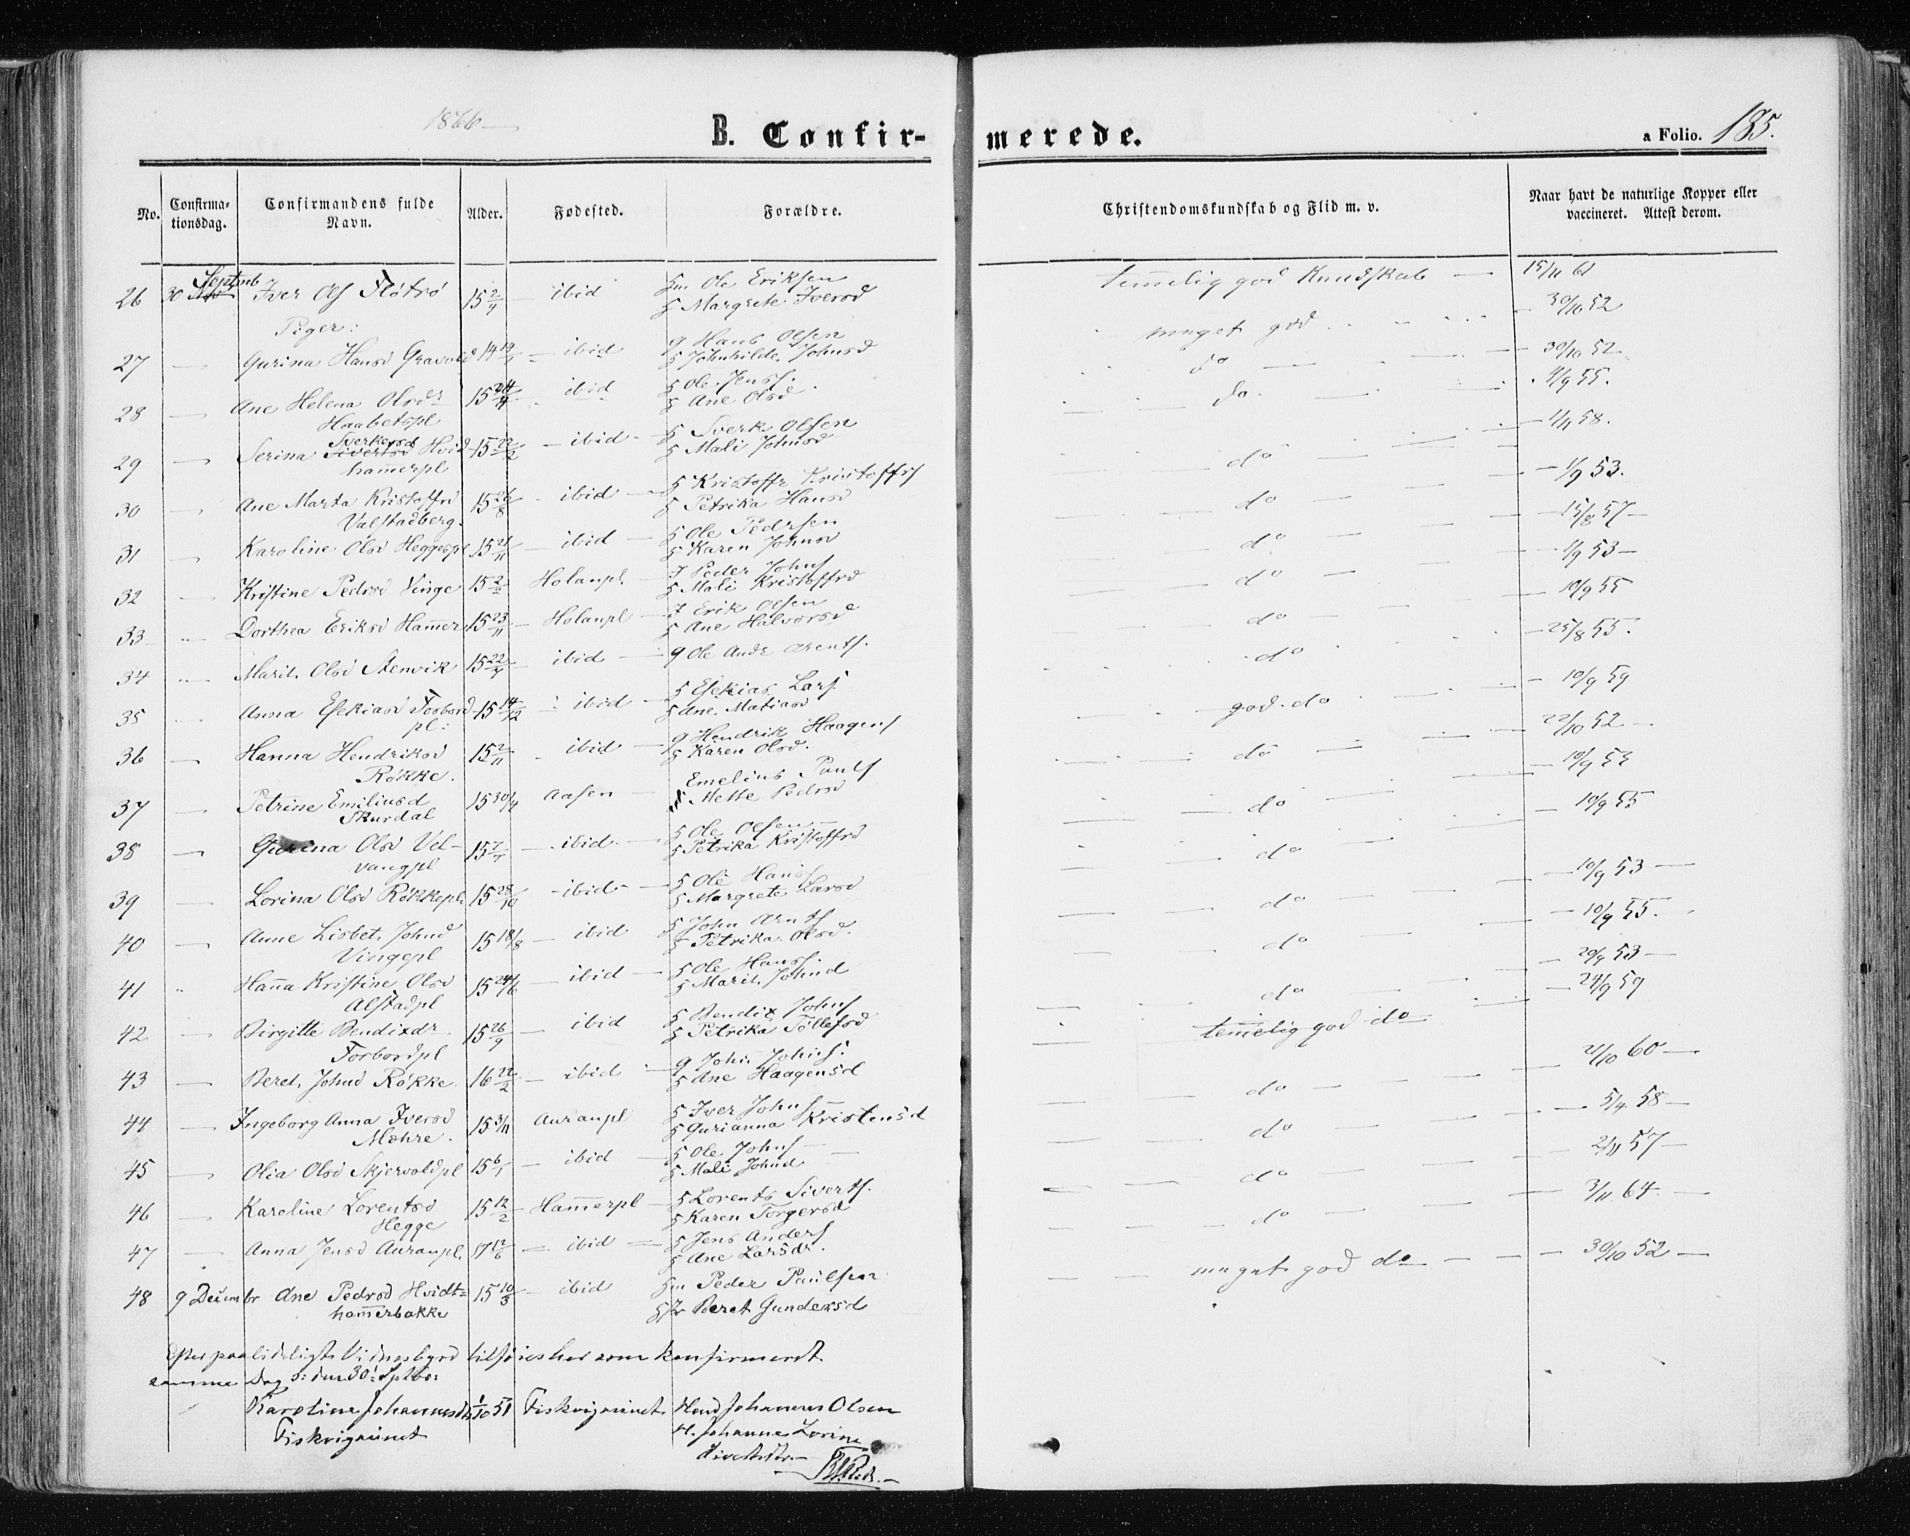 1866
B. Confir-
merede.
a Folio. 185.
No. Confirma-tionsdag. Confirmandens fulde Navn. Alder. Fødested. Forældre. Christendomskundskab og Flid m. v. Naar havt de naturlige Kopper eller vaccineret. Attest derom.
26 30 Septemb Iver Ols Fløtrø 15 2/4 — ibid Hm Ole Eriksen temelig god Kundskab — 15/11 61
Margrete Iversd 30/10 52
Piger:
27 — Gurina Hansd Gravald 14 — ibid G Hans Olsen meget god
Johnhilde Johnsd do 30/10 52
28 — Ane Helena Olsdr 15 24/4 ibid Ole Jens. do 4/9 55.
Haabetspl Ane Olsd
Sverkersd
29 — Serina Sivertsd Hvid- 15 22/2 — ibid Sverk Olsen 1/11 58.
hammerpl Mali Johnsd do
30 — Ane Marta Kristoffrd 15 26/8 ibid — Kristoffr Kristoffs — 1/9 53.
Valstadberg. Petrika Hansd do
31 — Karoline Olsd Heggespl 15 21/11 — ibid Ole Pedersen 15/8 57 —
Karen Johnsd do
32 — Kristine Pedrsd Vinge 15 2/2 Holanpl. — Peder Johns 1/9 53 —
Mali Kristoffrd do
33 — Dorthea Eriksd Hammer 15 23/11 Holanpl — Erik Olsen 10/9 55
Ane Halvorsd do
34 — Marit Olsd Stenvik 15 22/4 — ibid — G Ole Andr Arents. do — 25/8 55.
35 Anna Esekiasd Forbord- 15 14/12 ibid — Esekias Lars 10/9 59
pl: Ane Matiasd god do
36 — Hanna Hendriksd 15 2/11 ibid — G Hendrik Haagens 22/10 52 —
Røkke. Karen Olsd. do
37 — Petrine Emiliusd 15 30/4 Aasen — Emelius Pauls 10/9 53
Skurdal Mette Pedrsd do
38 — Gurina Olsd Vel- 15 7/7 — ibid — Ole Olsen — 10/9 55
vangpl Petrika Kristoffrd do
39 — Lorina Olsd Røkkepl. 15 28/10 — ibid — Ole Hans 10/9 53 —
Margrete Larsd do
40 — Anne Lisbet Johnd 15 18/8 — ibid John Arnts — 10/9 55.
Vingepl Petrika Olsd. do
41 Hanna Kristine Olsd 15 24/6 — ibid — Ole Hans. 53 —
Alstadpl Marit Johnd do — 24/9 59
42 — Birgitte Bendixdr 15 26/9 — ibid Bendix Johns
Forbordpl Petrika Tøllefsd temelig god do
43 — Beret Johnd Røkke. 16 22/2 — ibid G John Johns. 21/10 60 —
Ane Haagensd do
44 — Ingeborg Anna Iversd 15 3/11 Auranpl Iver Johns — 5/4 58 —
Mæhre. Gurianna Kristensd do
45 — Olia Olsd Skjervoldpl 15 6/1 — ibid — Ole Johns — 57 —
Mali Johnd do
46 — Karoline Lorentsd 15 12/2 — Hammerpl — Lorents Siverts. — 3/11 64. —
Hegge Karen Torgersd do
47 Anna Jensd Auranpl. 17 12/6 — ibid — Jens Anders
Ane Larsdr.
48 9 Decembr Ane Pedrsd Hvidt- 15 10/3 ibid Hm Peder Paulsen meget god do — — — 30/10 52 —
hammerbakke Beret Gundersd
Efter paalideligt Vidnesbyrd tilføies her som konfirmeret
samme Dag o: den 30' Sptbr:
Karoline Johannesdtr 1/10 51 Fiskvigaunet. Hmd Johannes Olsen
Fiskvigaunet H. Johanne Lorine
Sivertsdtr —